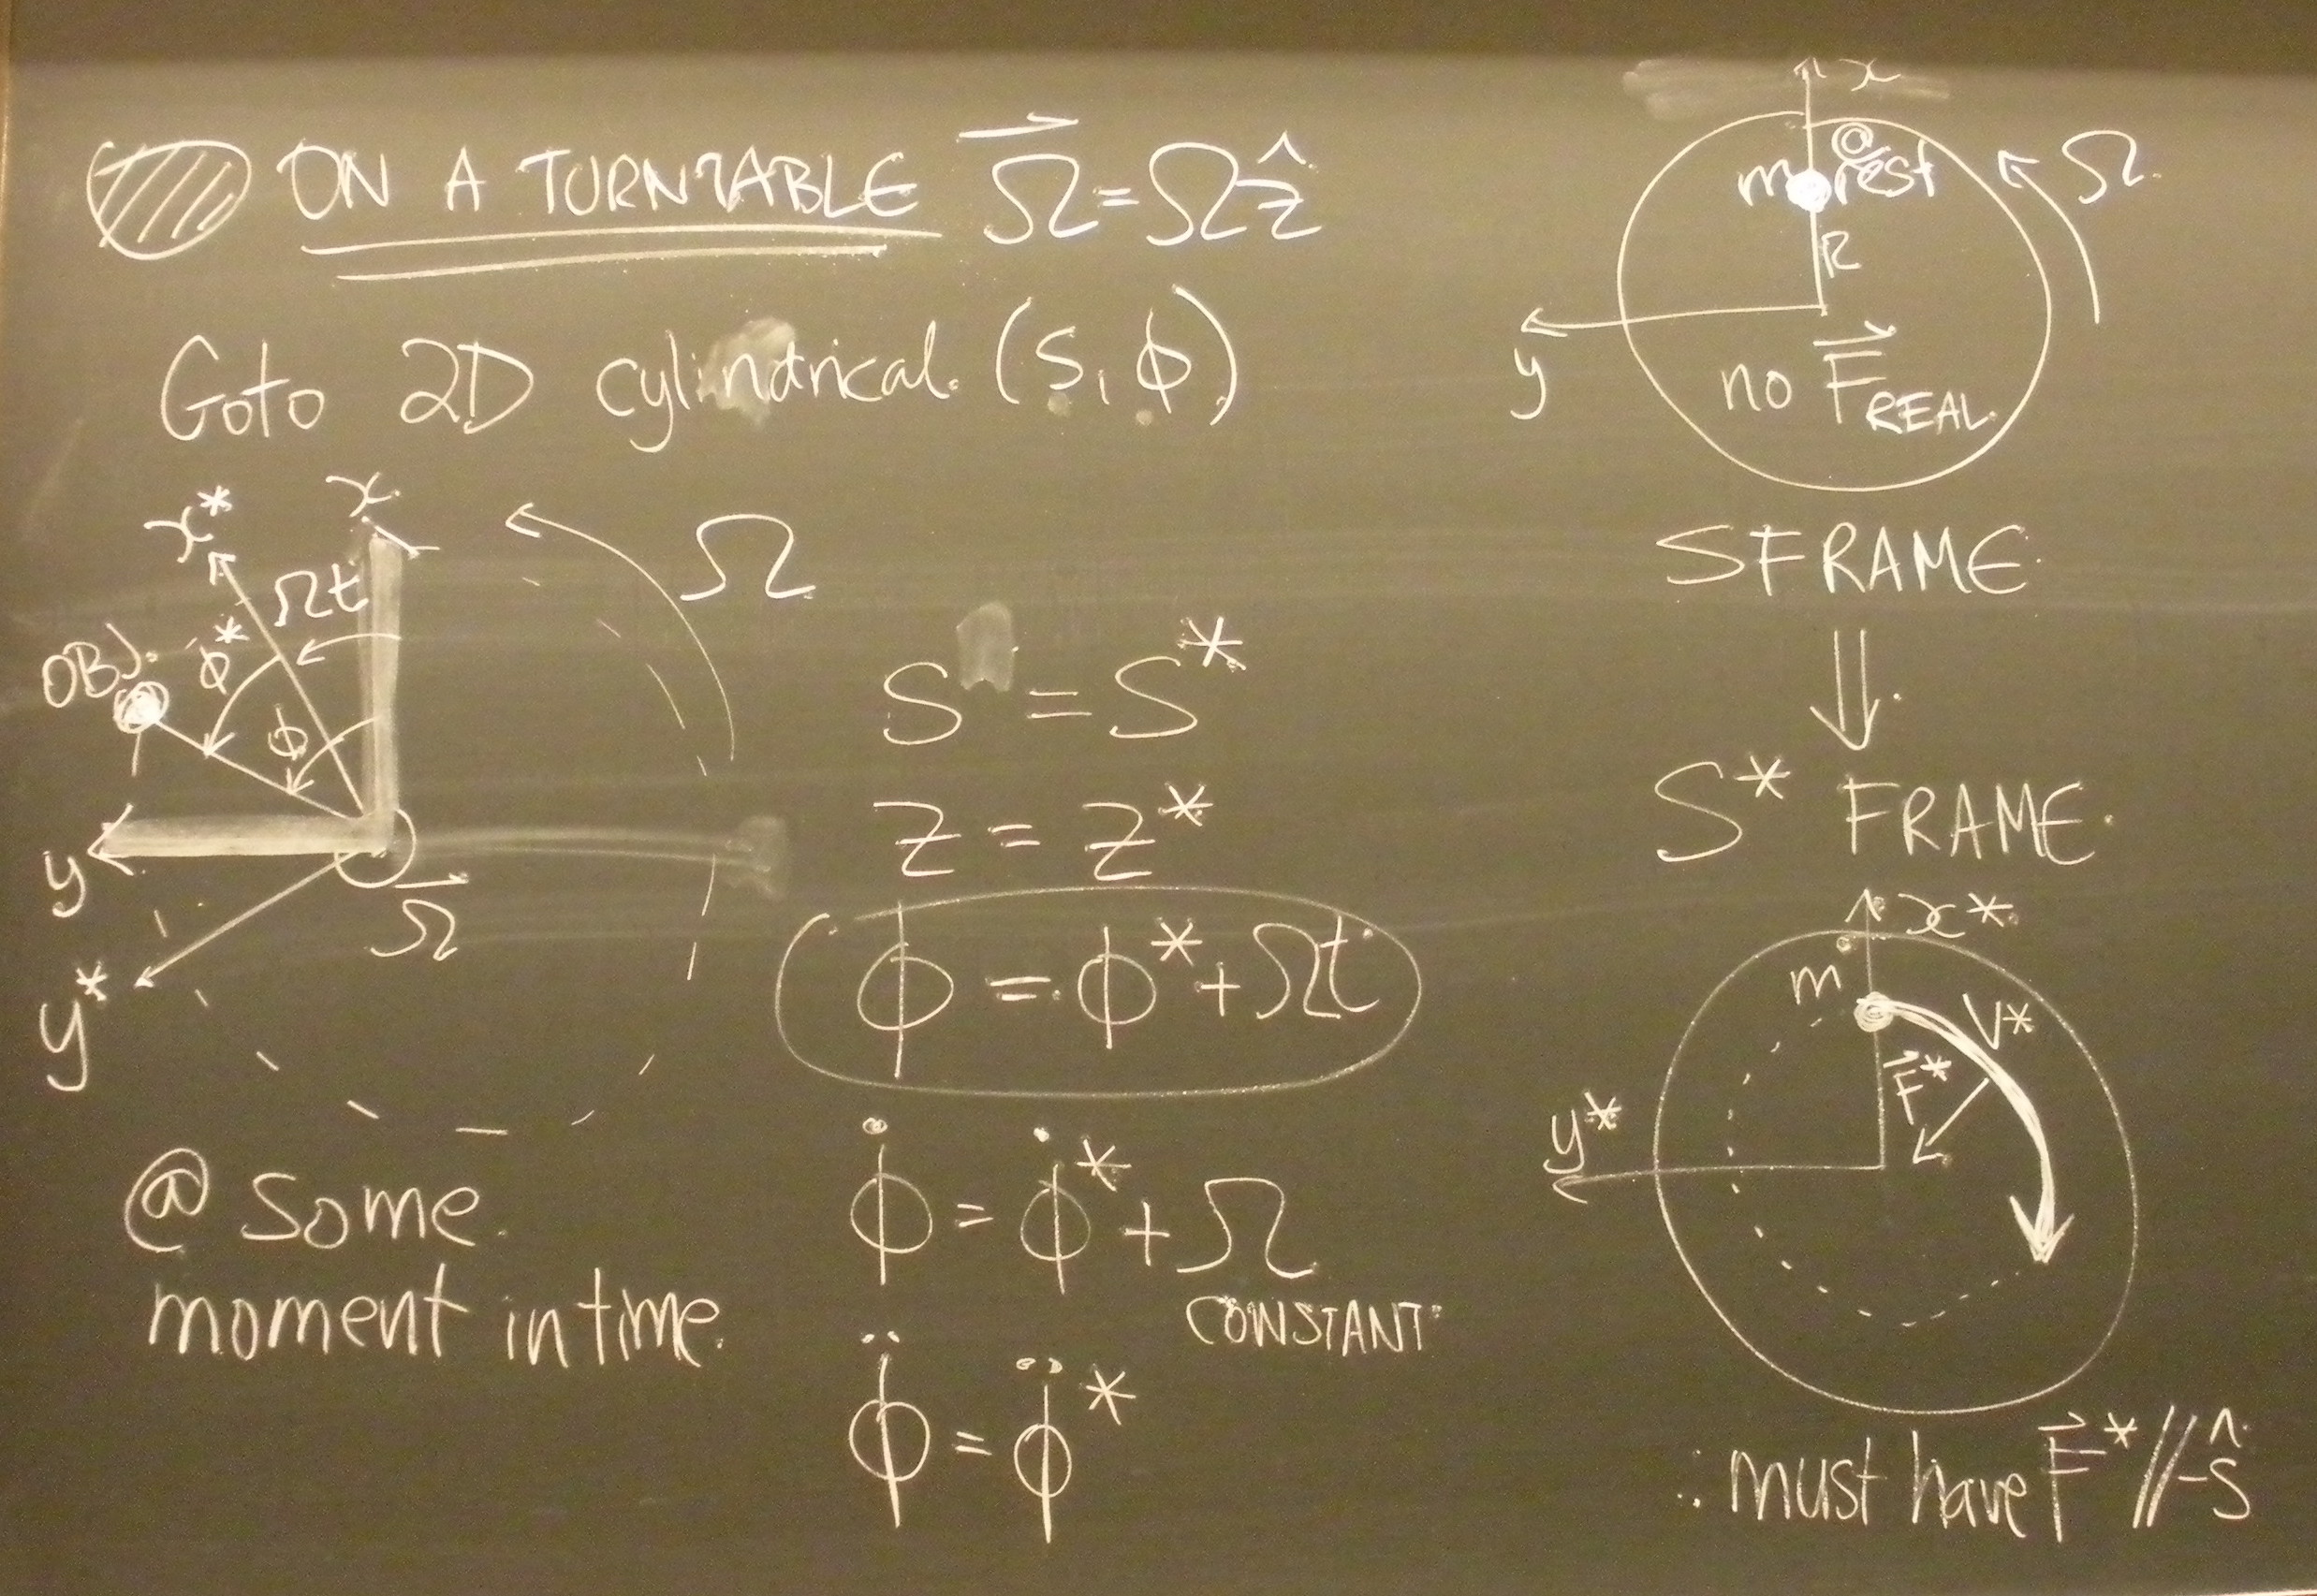 ON A TURNTABLE Ω⃗ = Ωẑ
Goto 2D cylindrical. (s, ϕ)
x*
x
Ωt
Ω
OBJ.
ϕ*
ϕ
y
Ω⃗
y*
@ some
moment in time.
s = s*
z = z*
ϕ = ϕ* + Ωt
ϕ̇ = ϕ̇* + Ω
CONSTANT
ϕ̈ = ϕ̈*
x
@
m rest
Ω
R
y
no F⃗REAL
S FRAME
⇓
S* FRAME.
x*
m
v*
F⃗*
y*
∴ must have F⃗* // -ŝ